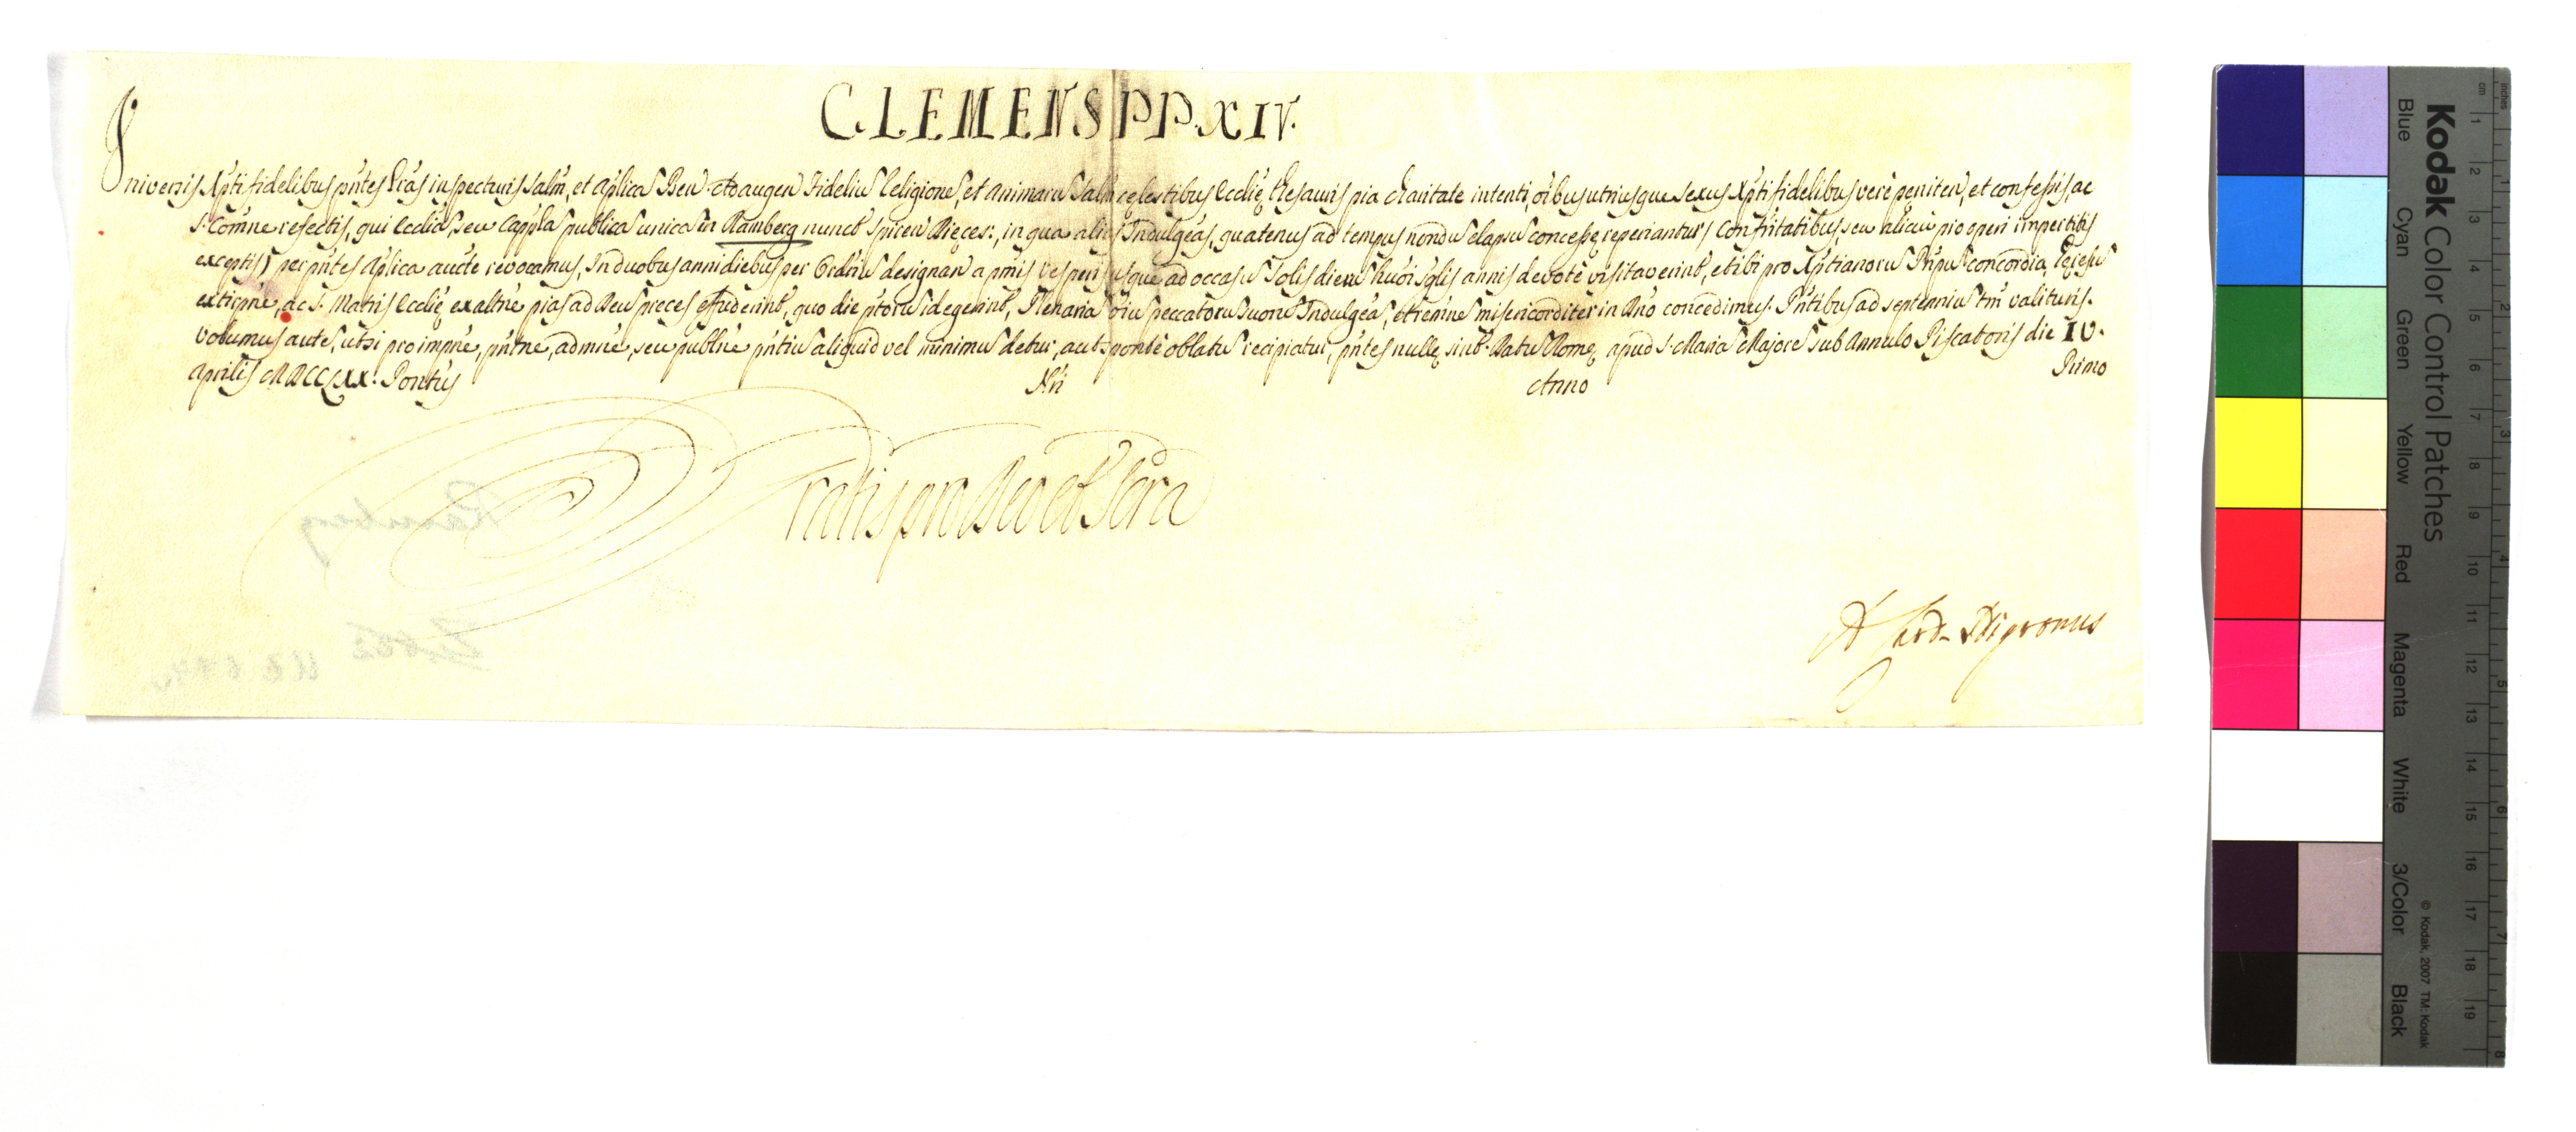 CLEMENS PP. XIV.
Universis Xpti fidelibus pñtes Lrãs inspecturis Salm̃, et Aplicã Ben. Ad augen Fideliũ Religionẽ, et animarũ Salm̃ cęlestibus Ecclię thesauris pia charitate intenti, oĩbus utriusque sexus Xpti fidelibus verè pęniteñ, et confessis, ac
S. Comñe refectis, qui Eccliã, seu Cappla publicã unicã in Ramberg nuncũ Spireñ Dięces:, in qua aliãs Indulgẽas, quatenus ad tempus nondũ elapsũ concessę reperiantur, confr̃itatibus, seu alicui pio operi impertitis
exceptis, per pñtes Aplica aucte revocamus, In duobus anni diebus per Ordriũ designañ a pmis vesperis usque ad occasũ Solis dierũ huõi sglis annis devotè visitaverint, et ibi pro Xptianorũ Pnpũ concordia, hęresũ
extirpñe, ac S. Matris Ecclię exaltñe pias ad Deũ preces effuderint, quo die ptorũ id egerint, Plenariã oiũ peccatorũ suorũ Indulgẽã, et remñe misericorditer in Dño concedimus. Pñtibus ad septenniũ tm̃ valituris.
Volumus autẽ, ut si pro impñe, pñtñe, admñe, seu publñe pñtiũ aliquid vel minimũ detur, aut sponte oblatũ recipiatur, pñtes nullę sint. Datũ Romę apud S. Mariã Majorẽ sub Annulo Piscatoris die IV.
Aprilis MDCCLXX. Pontũs Nri Anno Primo
Gratis pro Deo et Scra
A Card. Nigronus
Ramberg
Kodak Color Control Patches
Blue Cyan Green Yellow Red Magenta White 3/Color Black
© Kodak, 2007 TM: Kodak
cm 1 2 3 4 5 6 7 8 9 10 11 12 13 14 15 16 17 18 19
inches 1 2 3 4 5 6 7 8